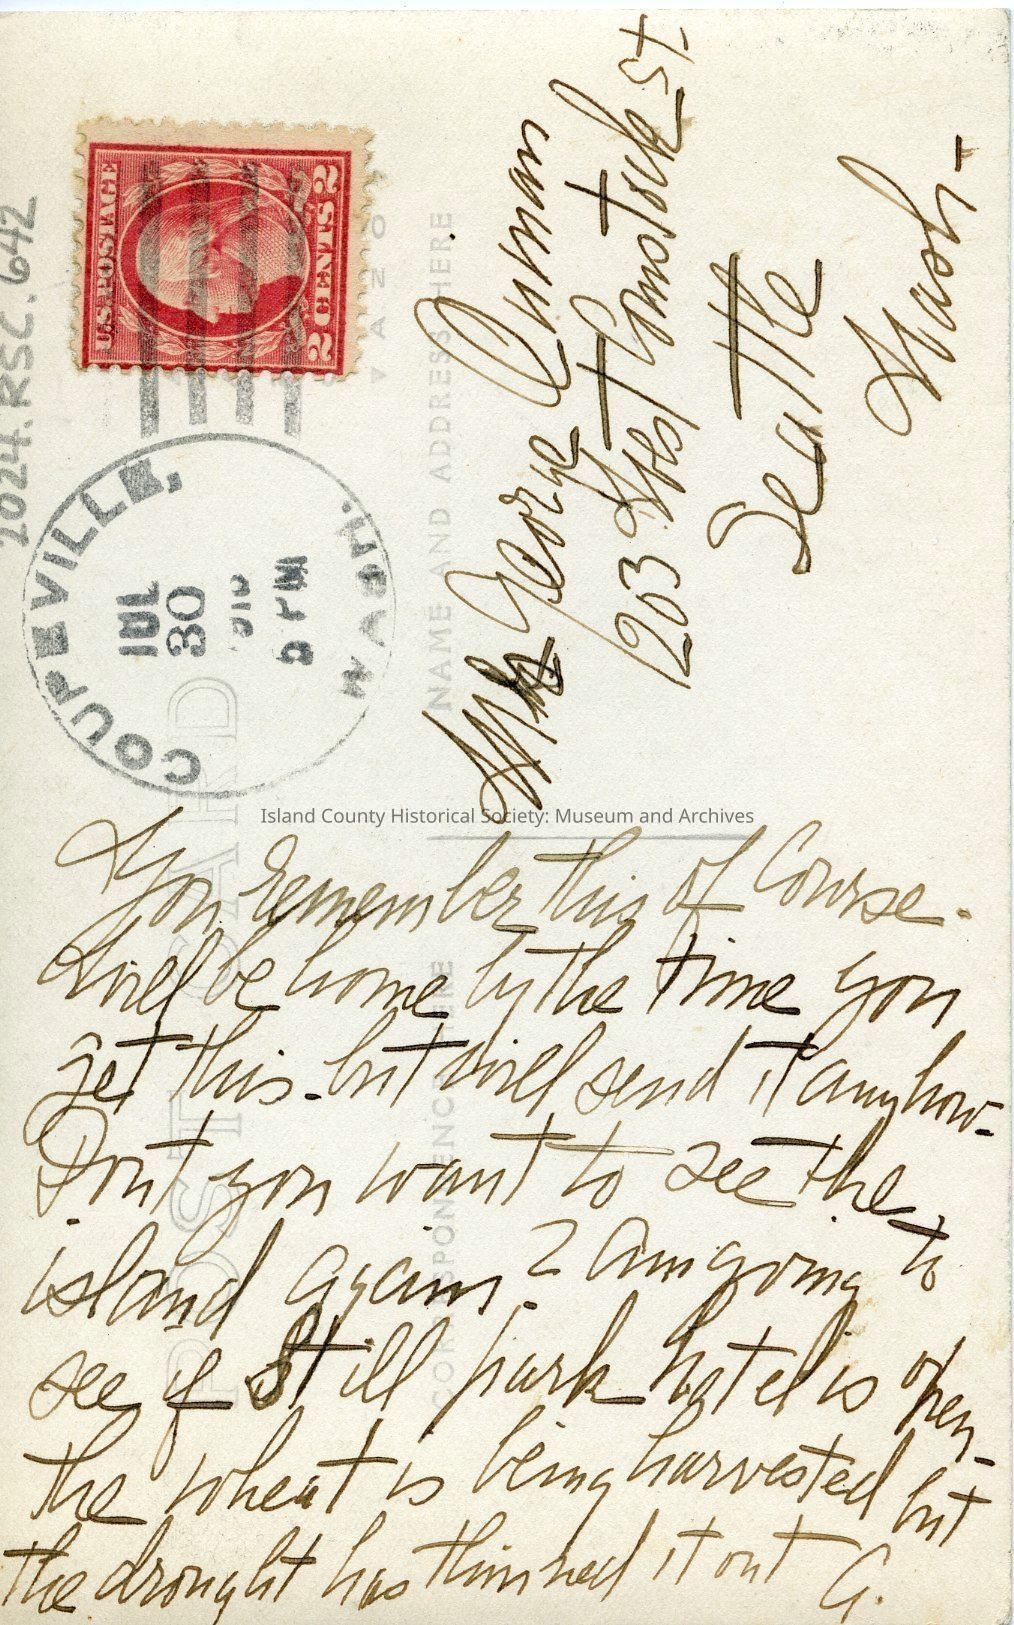 2024.RSC.642
U.S. POSTAGE
2 CENTS 2
COUPEVILLE,
WASH.
JUL
30
5 PM
POST CARD
CORRESPONDENCE HERE
NAME AND ADDRESS HERE
Mrs George
203 West Comstock St.
Seattle
Wash-
Island County Historical Society: Museum and Archives
You Remember this of Course.
Will be home by the time you
get this - but will send it anyhow-
Dont you want to see the
island again? Am going to
see if Still park hotel is open-
the wheat is being harvested but
the drought has thinned it out G.